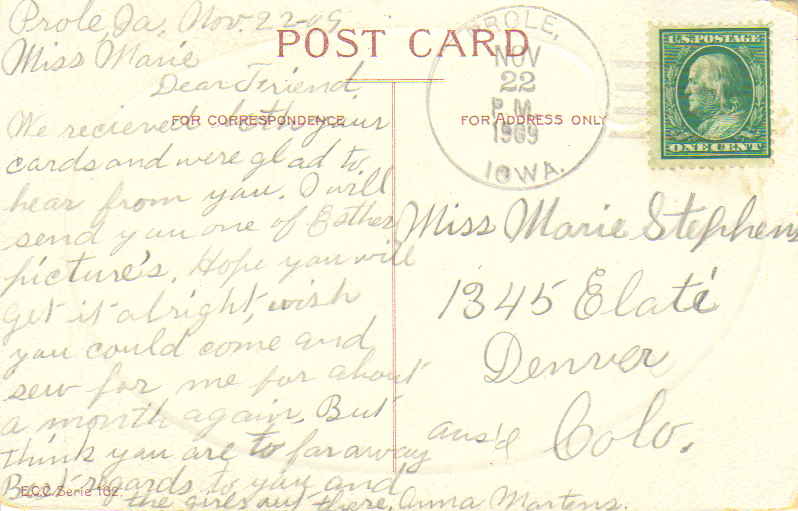 Prole, Ia, Nov. 22-09
Miss Marie
Dear Friend
We recieved both your
cards and were glad to
hear from you. I will
send you one of Esther
picture's. Hope you will
get it alright, wish
you could come and
sew for me for about
a month again. But
think you are to far away
Best regards to you and
the girls out there. Anna Martens.
POST CARD
FOR CORRESPONDENCE
FOR ADDRESS ONLY
PROLE,
NOV
22
P.M.
1909
IOWA.
U.S. POSTAGE
ONE CENT
Miss Marie Stephens
1345 Elati
Denver
Colo.
ans'd
E.C.C. Serie 162.